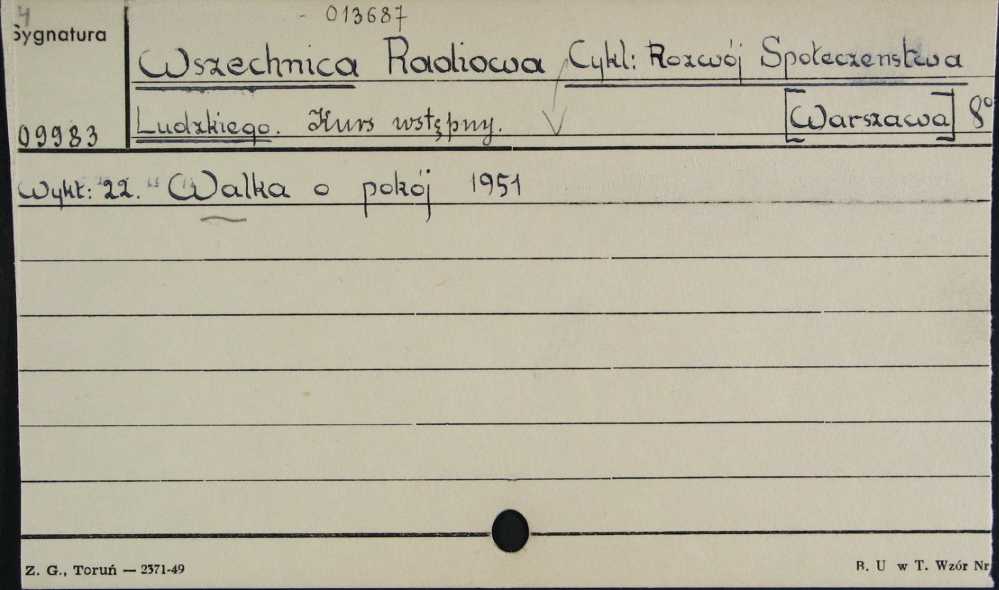 4
- 013687
Sygnatura
Wszechnica Radiowa Cykl: Rozwój Społeczenstwa
09983
Ludzkiego. Kurs wstępny. [Warszawa] 8°
Wykł: 22. "Walka o pokój 1951
Z. G., Toruń — 2371-49
B. U w T. Wzór Nr